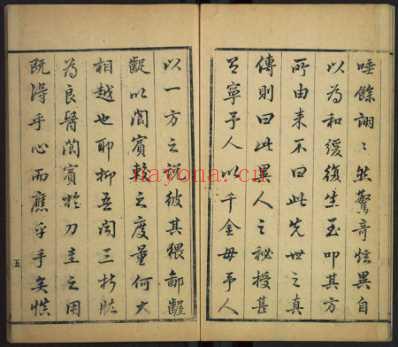 唾餘詡詡然驚奇炫異自
以為和緩復生至叩其方
所由来不曰此先世之真
傳則曰此異人之秘授甚
且寧予人以千金毋予人
以一方之説彼其猥鄙齷
齪以閤賓較之度量何大
相越也耶抑吾聞三折肱
為良醫閤賓於刀圭之用
既得乎心而應乎手矣慎
五
hayona.cn